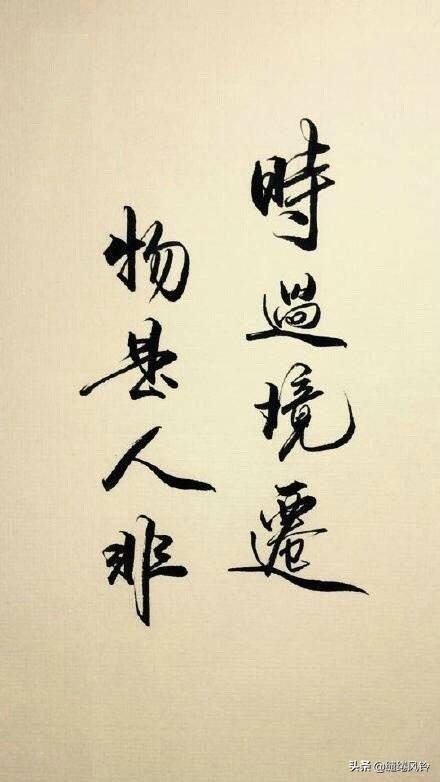 時過境遷
物是人非
头条 @缱绻风铃